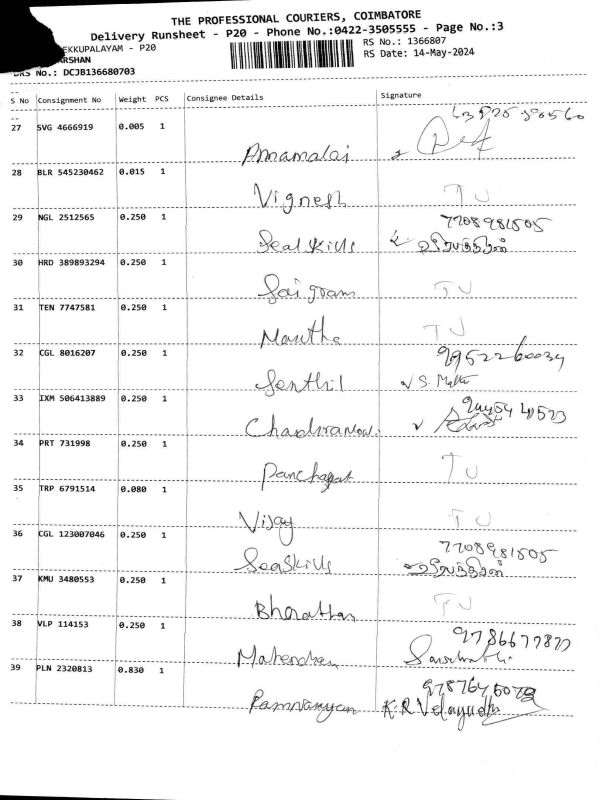 THE PROFESSIONAL COURIERS, COIMBATORE
Delivery Runsheet - P20 - Phone No.:0422-3505555 - Page No.:3
EKKUPALAYAM - P20
RS No.: 1366807
ARSHAN
RS Date: 14-May-2024
DRS No.: DCJB136680703
S No Consignment No Weight PCS Consignee Details Signature
27 SVG 4666919 0.005 1
Annamalai
28 BLR 545230462 0.015 1
Vignesh TJ
29 NGL 2512565 0.250 1 7708981505
Seaskills
30 HRD 389893294 0.250 1
Sai gram TJ
31 TEN 7747581 0.250 1
TJ
32 CGL 8016207 0.250 1 9952260034
Senthil
33 IXM 506413889 0.250 1
34 PRT 731998 0.250 1
TJ
35 TRP 6791514 0.080 1
Vijay TJ
36 CGL 123007046 0.250 1 7708981505
Seaskills
37 KMU 3480553 0.250 1
TJ
38 VLP 114153 0.250 1
39 PLN 2320813 0.830 1
K.R Velayudh